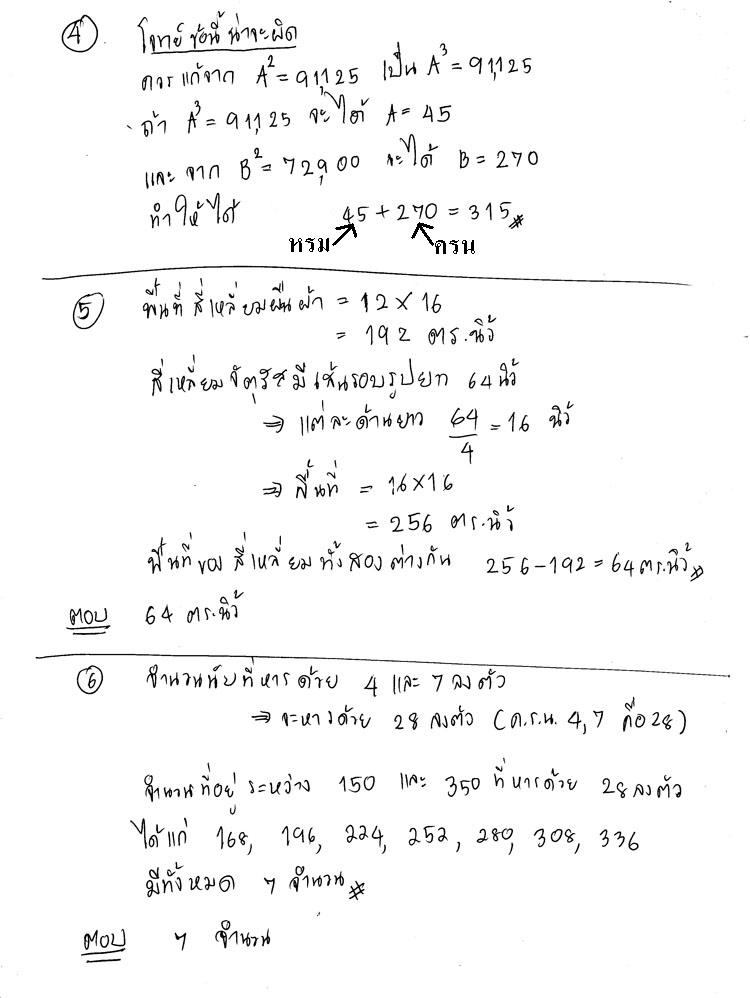 ④ โจทย์ข้อนี้น่าจะผิด
ควรแก้จาก A² = 91,125 เป็น A³ = 91,125
ถ้า A³ = 91,125 จะได้ A = 45
และ จาก B² = 72,900 จะได้ B = 270
ทำให้ได้ 45 + 270 = 315 #
หรม ครน
⑤ พื้นที่สี่เหลี่ยมผืนผ้า = 12 × 16
= 192 ตร.นิ้ว
สี่เหลี่ยมจัตุรัสมีเส้นรอบรูปยาว 64 นิ้ว
⇒ แต่ละด้านยาว 64/4 = 16 นิ้ว
⇒ พื้นที่ = 16×16
= 256 ตร.นิ้ว
พื้นที่ของสี่เหลี่ยมทั้งสองต่างกัน 256 – 192 = 64 ตร.นิ้ว #
ตอบ 64 ตร.นิ้ว
⑥ จำนวนนับที่หารด้วย 4 และ 7 ลงตัว
⇒ จะหารด้วย 28 ลงตัว (ค.ร.น. 4, 7 คือ 28)
จำนวนที่อยู่ระหว่าง 150 และ 350 ที่หารด้วย 28 ลงตัว
ได้แก่ 168, 196, 224, 252, 280, 308, 336
มีทั้งหมด 7 จำนวน #
ตอบ 7 จำนวน